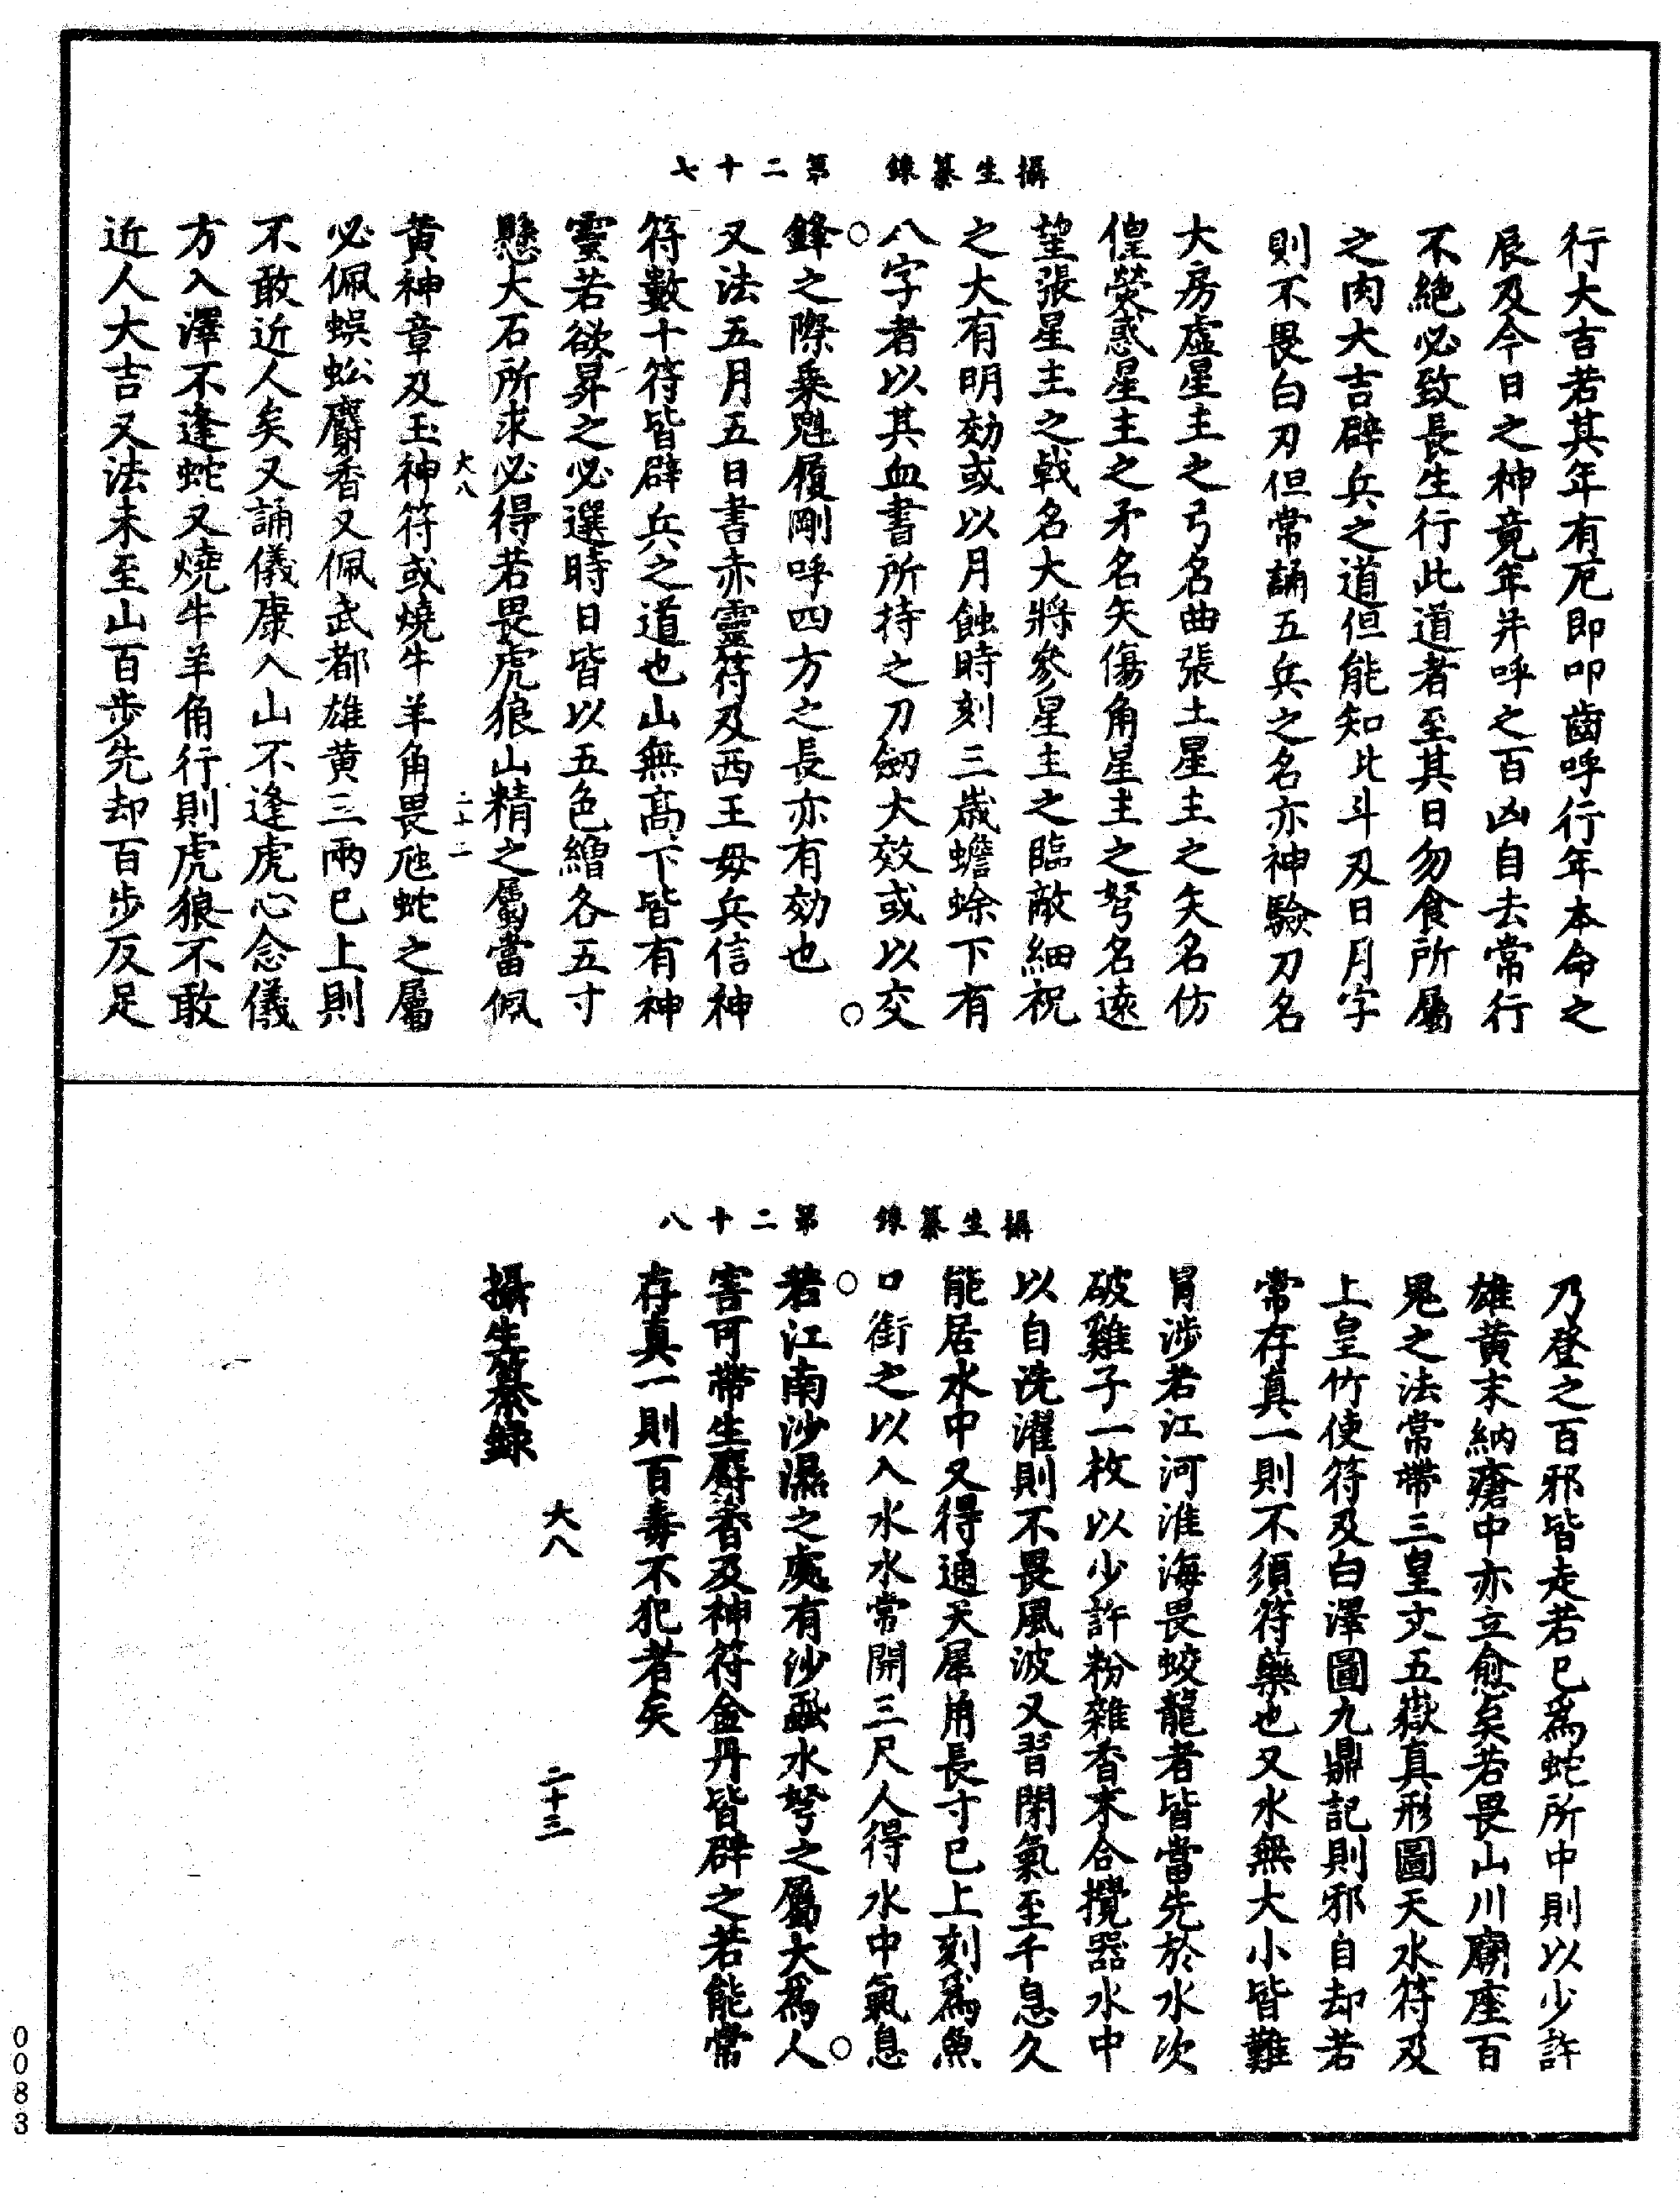 攝生纂錄　第二十七
行大吉若其年有厄即叩齒呼行年本命之
辰及今日之神竟年并呼之百凶自去常行
不絕必致長生行此道者至其日勿食所屬
之肉大吉辟兵之道但能知北斗及日月字
則不畏白刃但常誦五兵之名亦神驗刀名
大房虛星主之弓名曲張土星主之矢名仿
偟熒惑星主之矛名矢傷角星主之弩名遠
望張星主之戟名大將參星主之臨敵細祝
之大有明効或以月蝕時刻三歲蟾蜍下有
八字者以其血書所持之刀劒大效或以交
鋒之際乘魁履剛呼四方之長亦有効也
又法五月五日書赤靈符及西王毋兵信神
符數十符皆辟兵之道也山無高下皆有神
靈若欲昇之必選時日皆以五色繒各五寸
懸大石所求必得若畏虎狼山精之屬當佩
大八　二十二
黃神章及玉神符或燒牛羊角畏虺蛇之屬
必佩蜈蚣麝香又佩武都雄黃三兩已上則
不敢近人矣又誦儀康入山不逢虎心念儀
方入澤不逢蛇又燒牛羊角行則虎狼不敢
近人大吉又法未至山百步先却百步反足
攝生纂錄　第二十八
乃登之百邪皆走若已爲蛇所中則以少許
雄黃末納瘡中亦立愈矣若畏山川廟座百
鬼之法常帶三皇文五嶽真形圖天水符及
上皇竹使符及白澤圖九鼎記則邪自却若
常存真一則不須符藥也又水無大小皆難
冐涉若江河淮海畏蛟龍者皆當先於水次
破雞子一枚以少許粉雜香末合攪器水中
以自洗濯則不畏風波又習閉氣至千息久
能居水中又得通天犀角長寸已上刻爲魚
口銜之以入水水常開三尺人得水中氣息
若江南沙濕之處有沙虱水弩之屬大爲人
害可帶生麝香及神符金丹皆辟之若能常
存真一則百毒不犯者矣
大八　二十三
攝生纂錄
0083